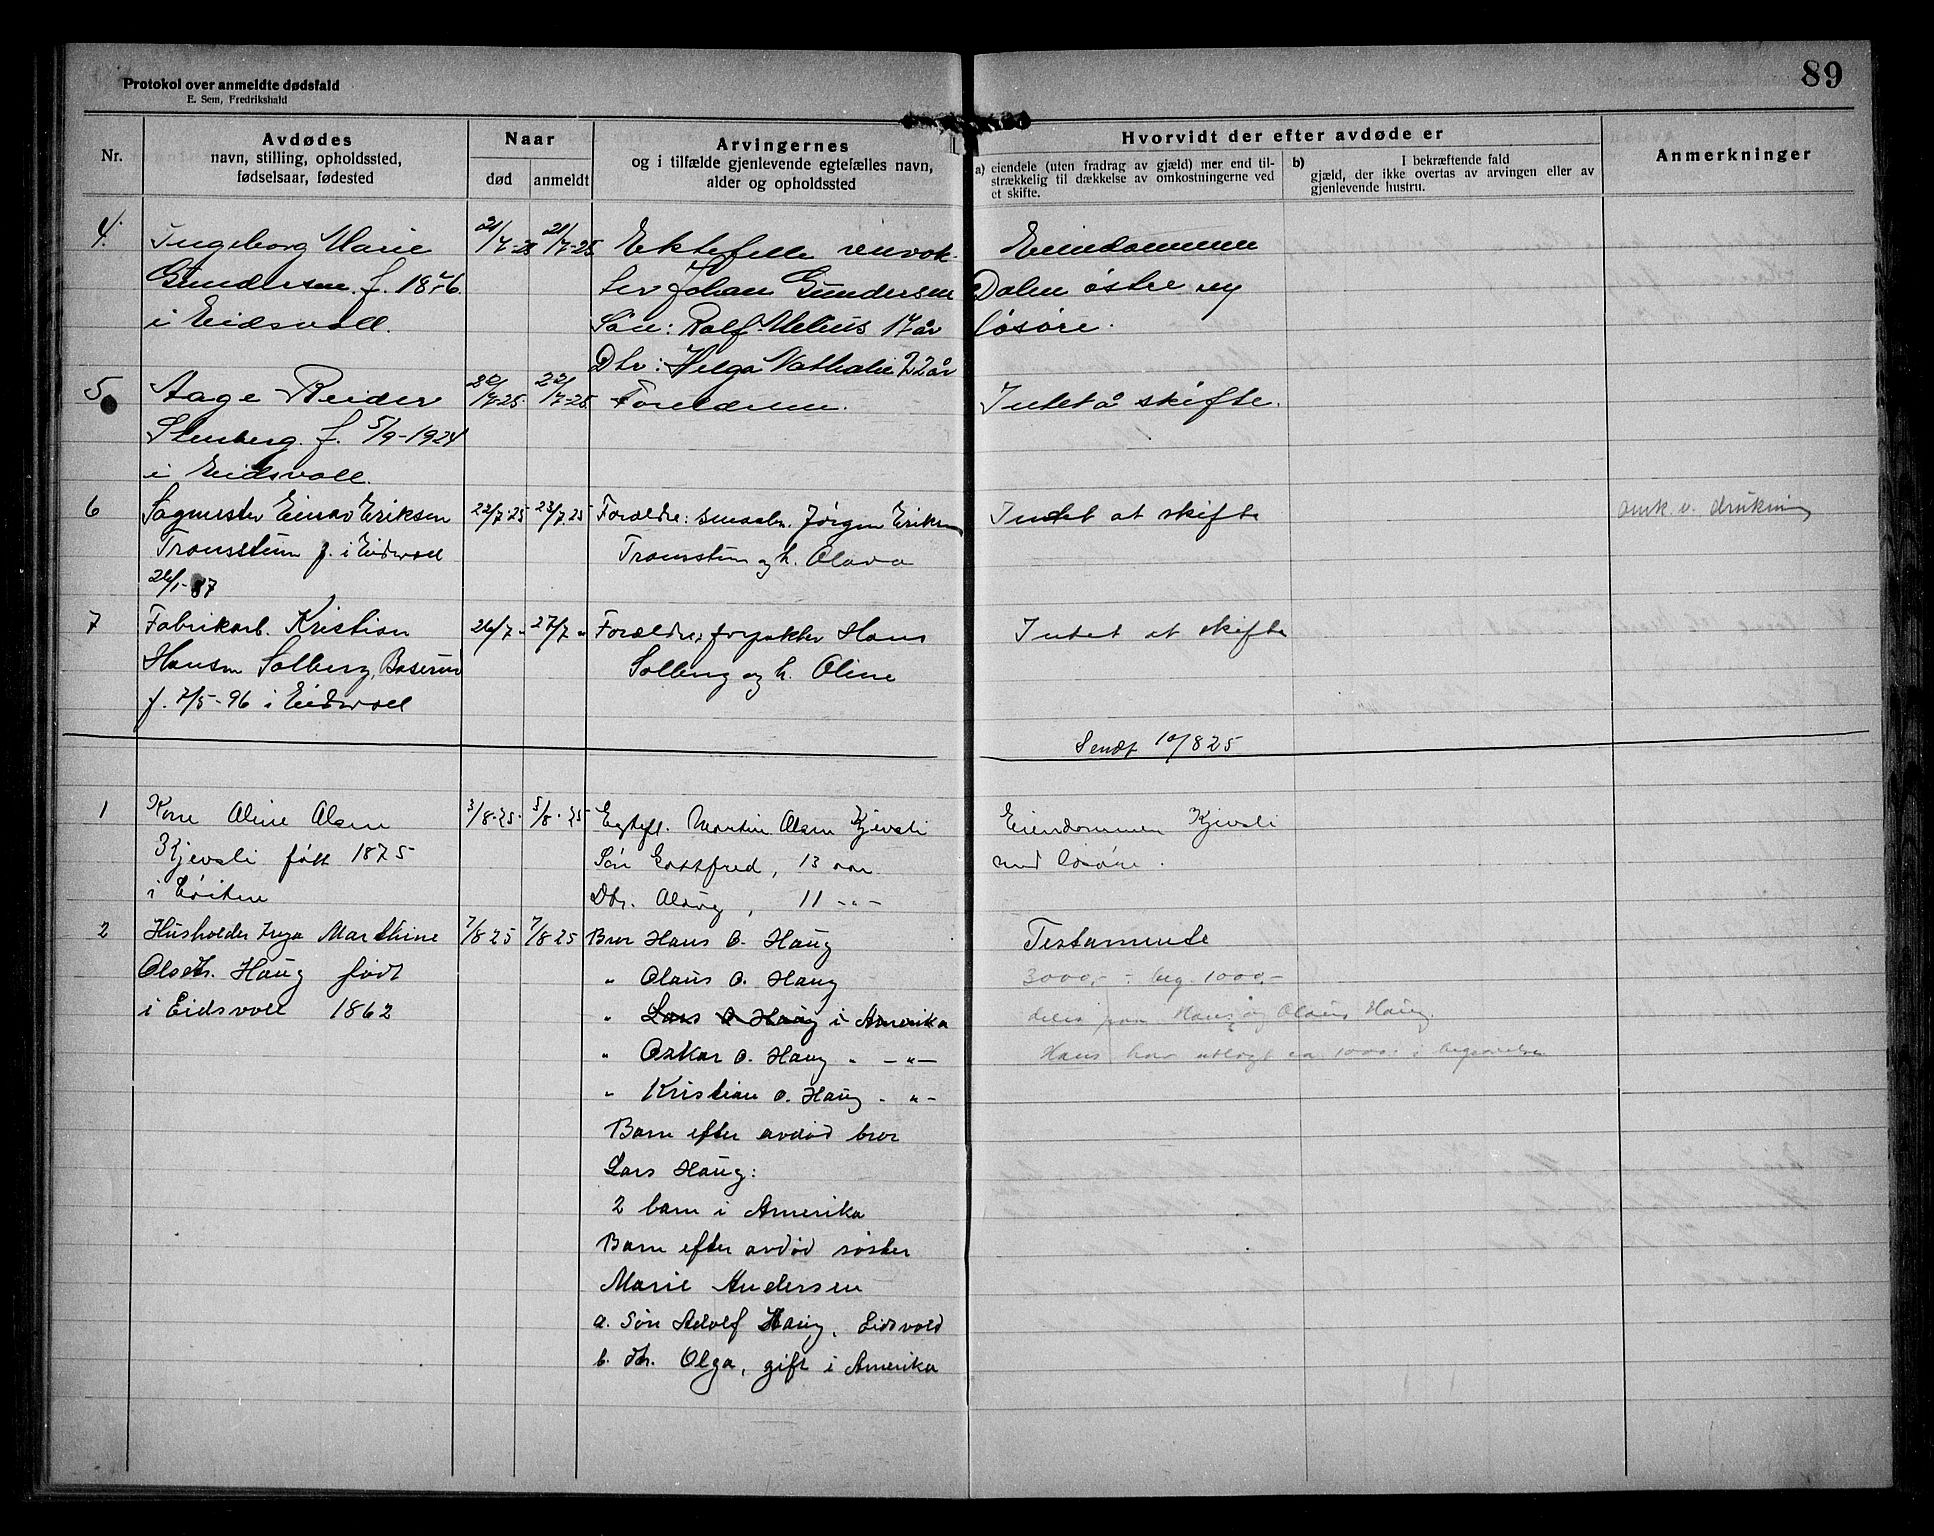 89
Protokol over anmeldte dødsfald
E. Sem, Fredrikshald
Nr.
Avdødes
navn, stilling, opholdssted,
fødselsaar, fødested
Naar
død
anmeldt
Arvingernes
og i tilfælde gjenlevende egtefælles navn,
alder og opholdssted
Hvorvidt der efter avdøde er
a) eiendele (uten fradrag av gjæld) mer end til-
strækkelig til dækkelse av omkostningerne ved
et skifte.
b) I bekræftende fald
gjæld, der ikke overtas av arvingen eller av
gjenlevende hustru.
Anmerkninger
4.
Ingeborg Marie
Gundersen. f. 1876
i Eidsvoll.
21/7-25
21/7-25
Ektefelle
Johan Gundersen
Søn: Rolf Melius 17 år
Dtr: Helga Nathalie 22 år
Eiendommen
Dalen østre og
løsøre.
5
Aage Reider
Stenberg. f. 5/9-1924
i Eidsvoll.
22/7-25
Forældrene.
Intet å skifte.
6
Sagmester Einar Eriksen
Tronsstuen f. i Eidsvoll
26/1-87
22/7-25
23/7 25
Forældre: Jørgen Eriksen
Tronsstuen og h. Olava
Intet at skifte
omk. v. drukning
7
Fabrikarb. Kristian
Hansen Solberg,
f. 7/5-96 i Eidsvoll
26/7 "
27/7 "
Forældre, forpakter Hans
Solberg og h. Oline
Intet at skifte
Sendt 10/8 25
1
Kone Oline Olsen
Kjevsli født 1875
i Løiten
3/8-25.
5/8-25
Egtef. Martin Olsen Kjevsli
Søn Gottfred, 13 aar
Dtr. Olaug, 11 -"-
Eiendommen Kjevsli
med løsøre.
2
Husholder Inga Marthine
Olsdtr. Haug født
i Eidsvoll 1862
7/8 25
7/8 25
Bror Hans O. Haug
" Olaus O. Haug
" Lars O Haug i Amerika
" Oskar O. Haug " -"-
" Kristian O. Haug - "-
Barn efter avdød bror
Lars Haug:
2 barn i Amerika
Barn efter avdød søster
Marie Andersen
a. Søn Adolf Haug, Eidsvold
b. dtr. Olga, gift i Amerika
Testamente
3000,- : beg. 1000,-
deles paa Hans og Olaus Haug.
Hans har utlagt ca 1000.- i begravelse